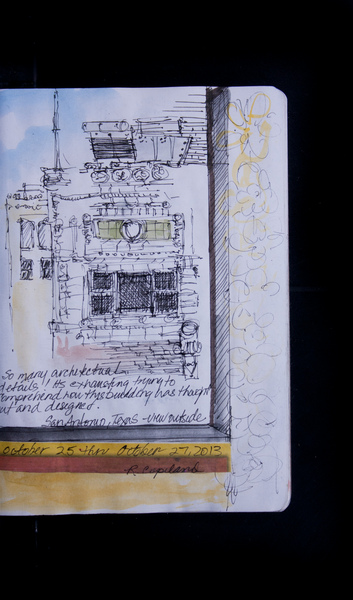 So many architectual
details! It's exhausting trying to
comprehend how this building was thought
out and designed.
San Antonio, Texas - view outside
October 25 thru October 27, 2013
R. Copeland